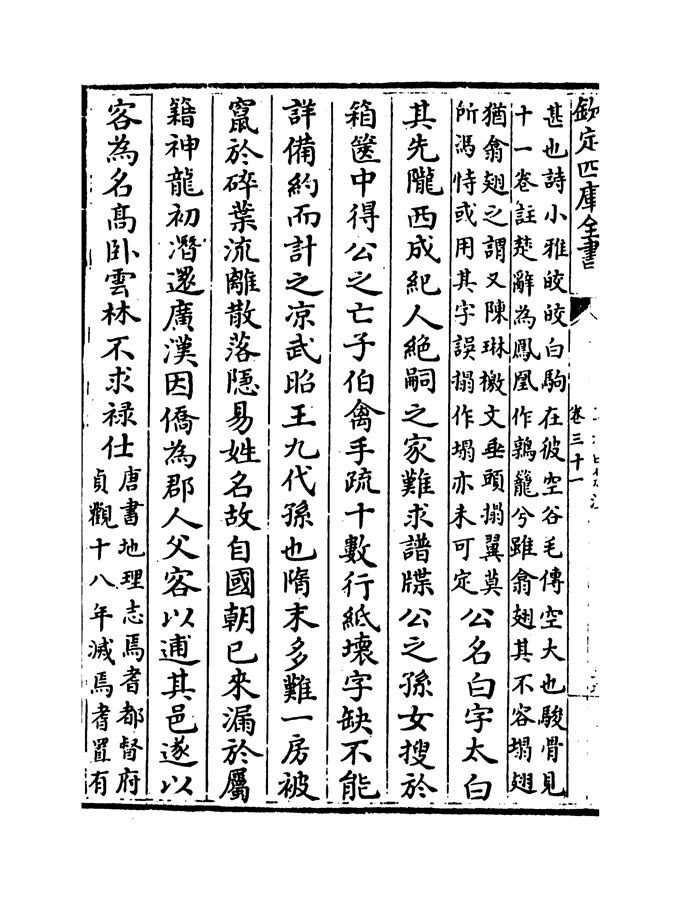 欽定四庫全書
卷三十一
甚也詩小雅皎皎白駒在彼空谷毛傳空大也駿骨見
十一卷註楚辭為鳳凰作鶉籠兮雖翕翅其不容塌翅
猶翕翅之謂又陳琳檄文垂頭搨翼莫
所馮恃或用其字誤搨作塌亦未可定
公名白字太白
其先隴西成紀人絕嗣之家難求譜牒公之孫女搜於
箱篋中得公之亡子伯禽手疏十數行紙壞字缺不能
詳備約而計之凉武昭王九代孫也隋末多難一房被
竄於碎葉流離散落隱易姓名故自國朝已來漏於屬
籍神龍初潛還廣漢因僑為郡人父客以逋其邑遂以
客為名高臥雲林不求禄仕
唐書地理志焉耆都督府
貞觀十八年滅焉耆置有